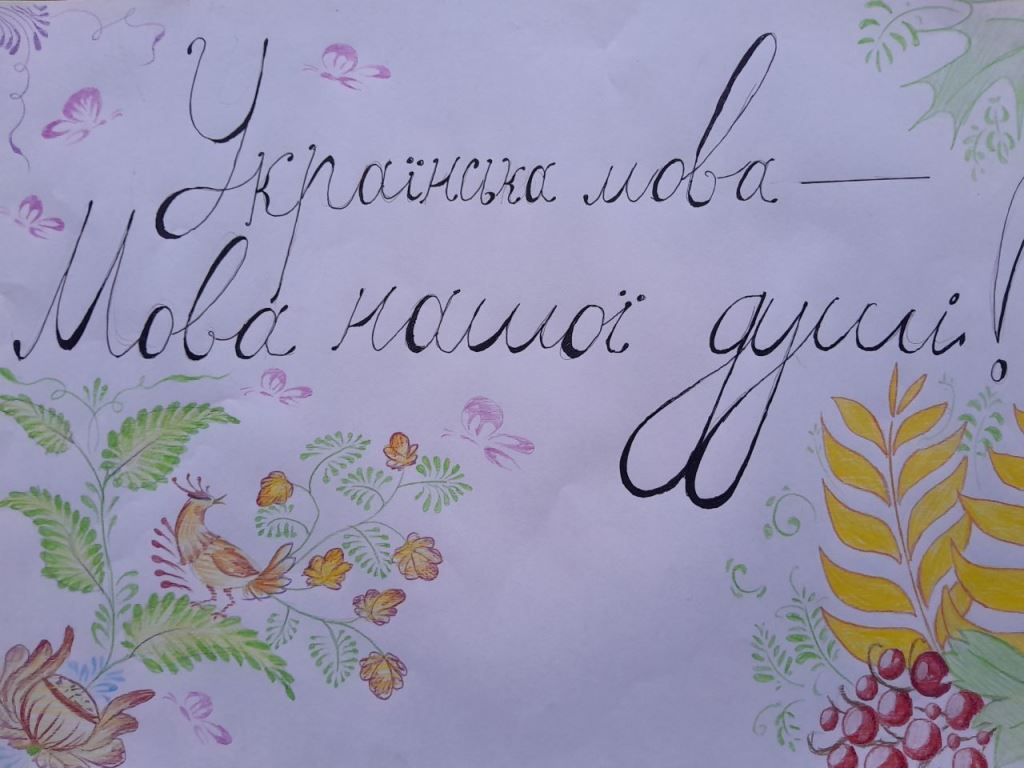 Українська мова —
Мова нашої душі!